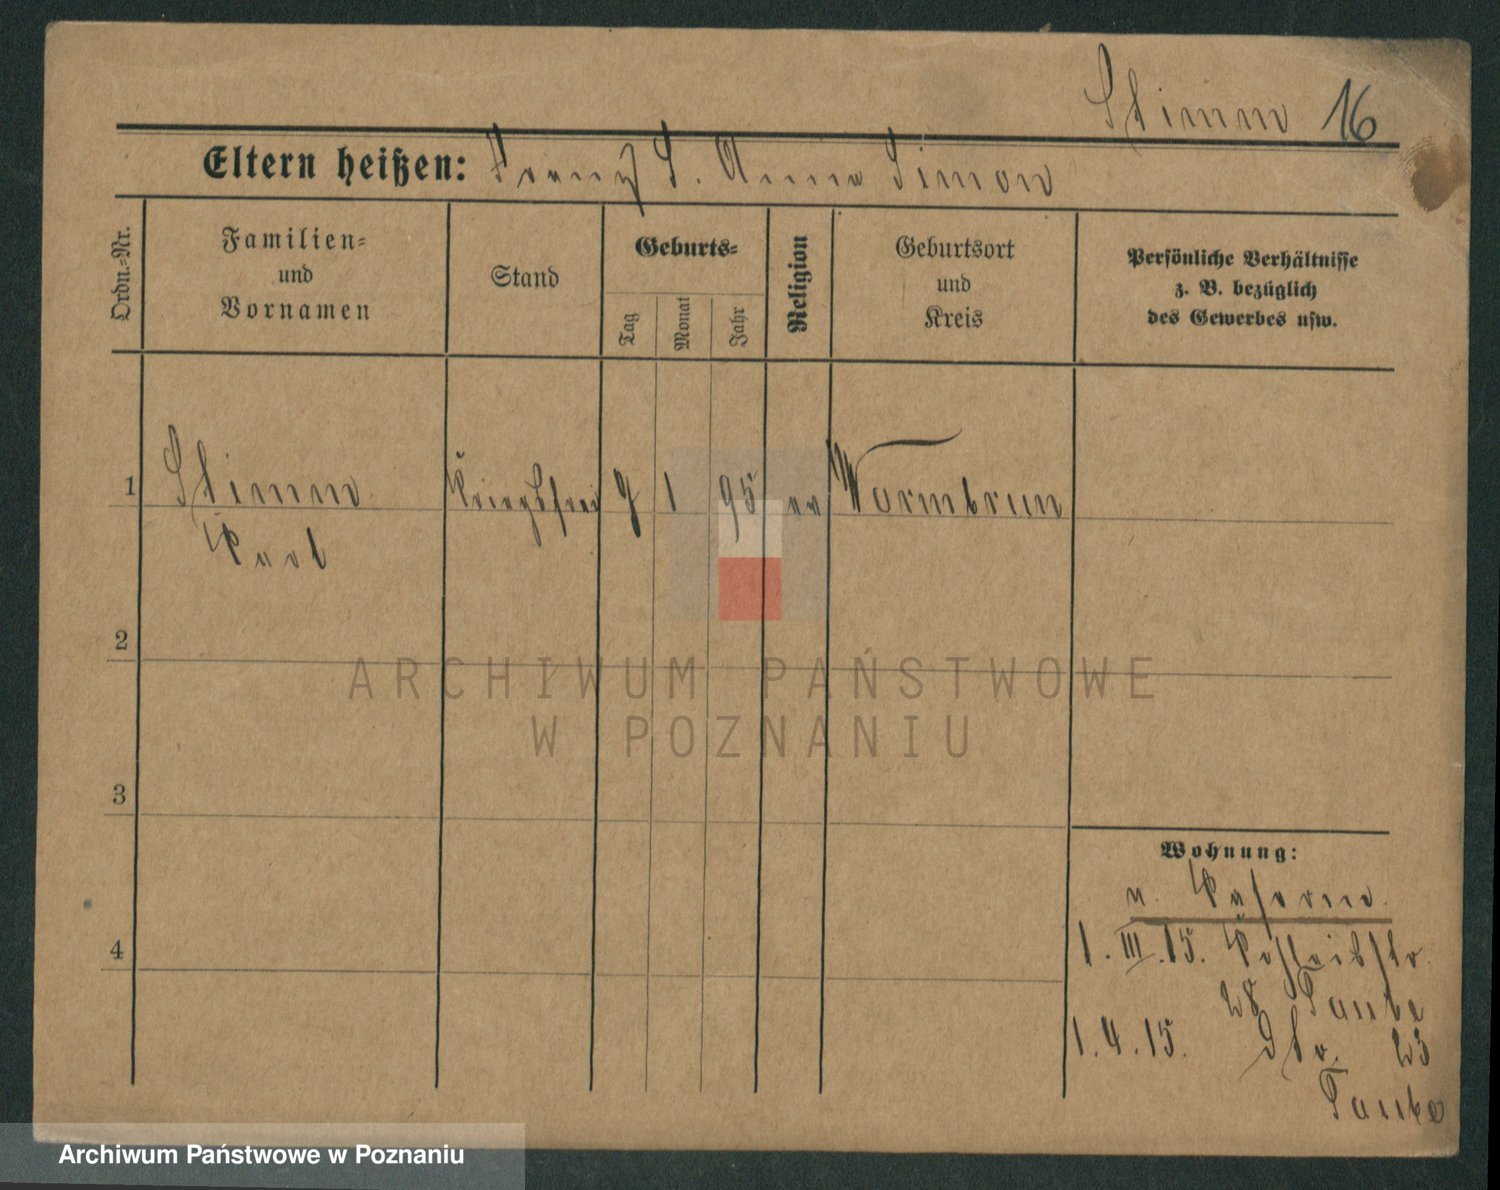 Stimm 16
Eltern heißen: Franz S. Anna Simon
Ordn.-Nr.
Familien-
und
Vornamen
Stand
Geburts-
Tag
Monat
Jahr
Religion
Geburtsort
und
Kreis
Persönliche Verhältnisse
z. B. bezüglich
des Gewerbes usw.
1 Stimm Kriegsfrei 9 1 95 ev Warmbrun
Karl
2
3
4
Wohnung:
n. Kaserne.
1. III. 15.
28 Taube
1. 4. 15. Str. 23
Taube
ARCHIWUM PAŃSTWOWE
W POZNANIU
Archiwum Państwowe w Poznaniu